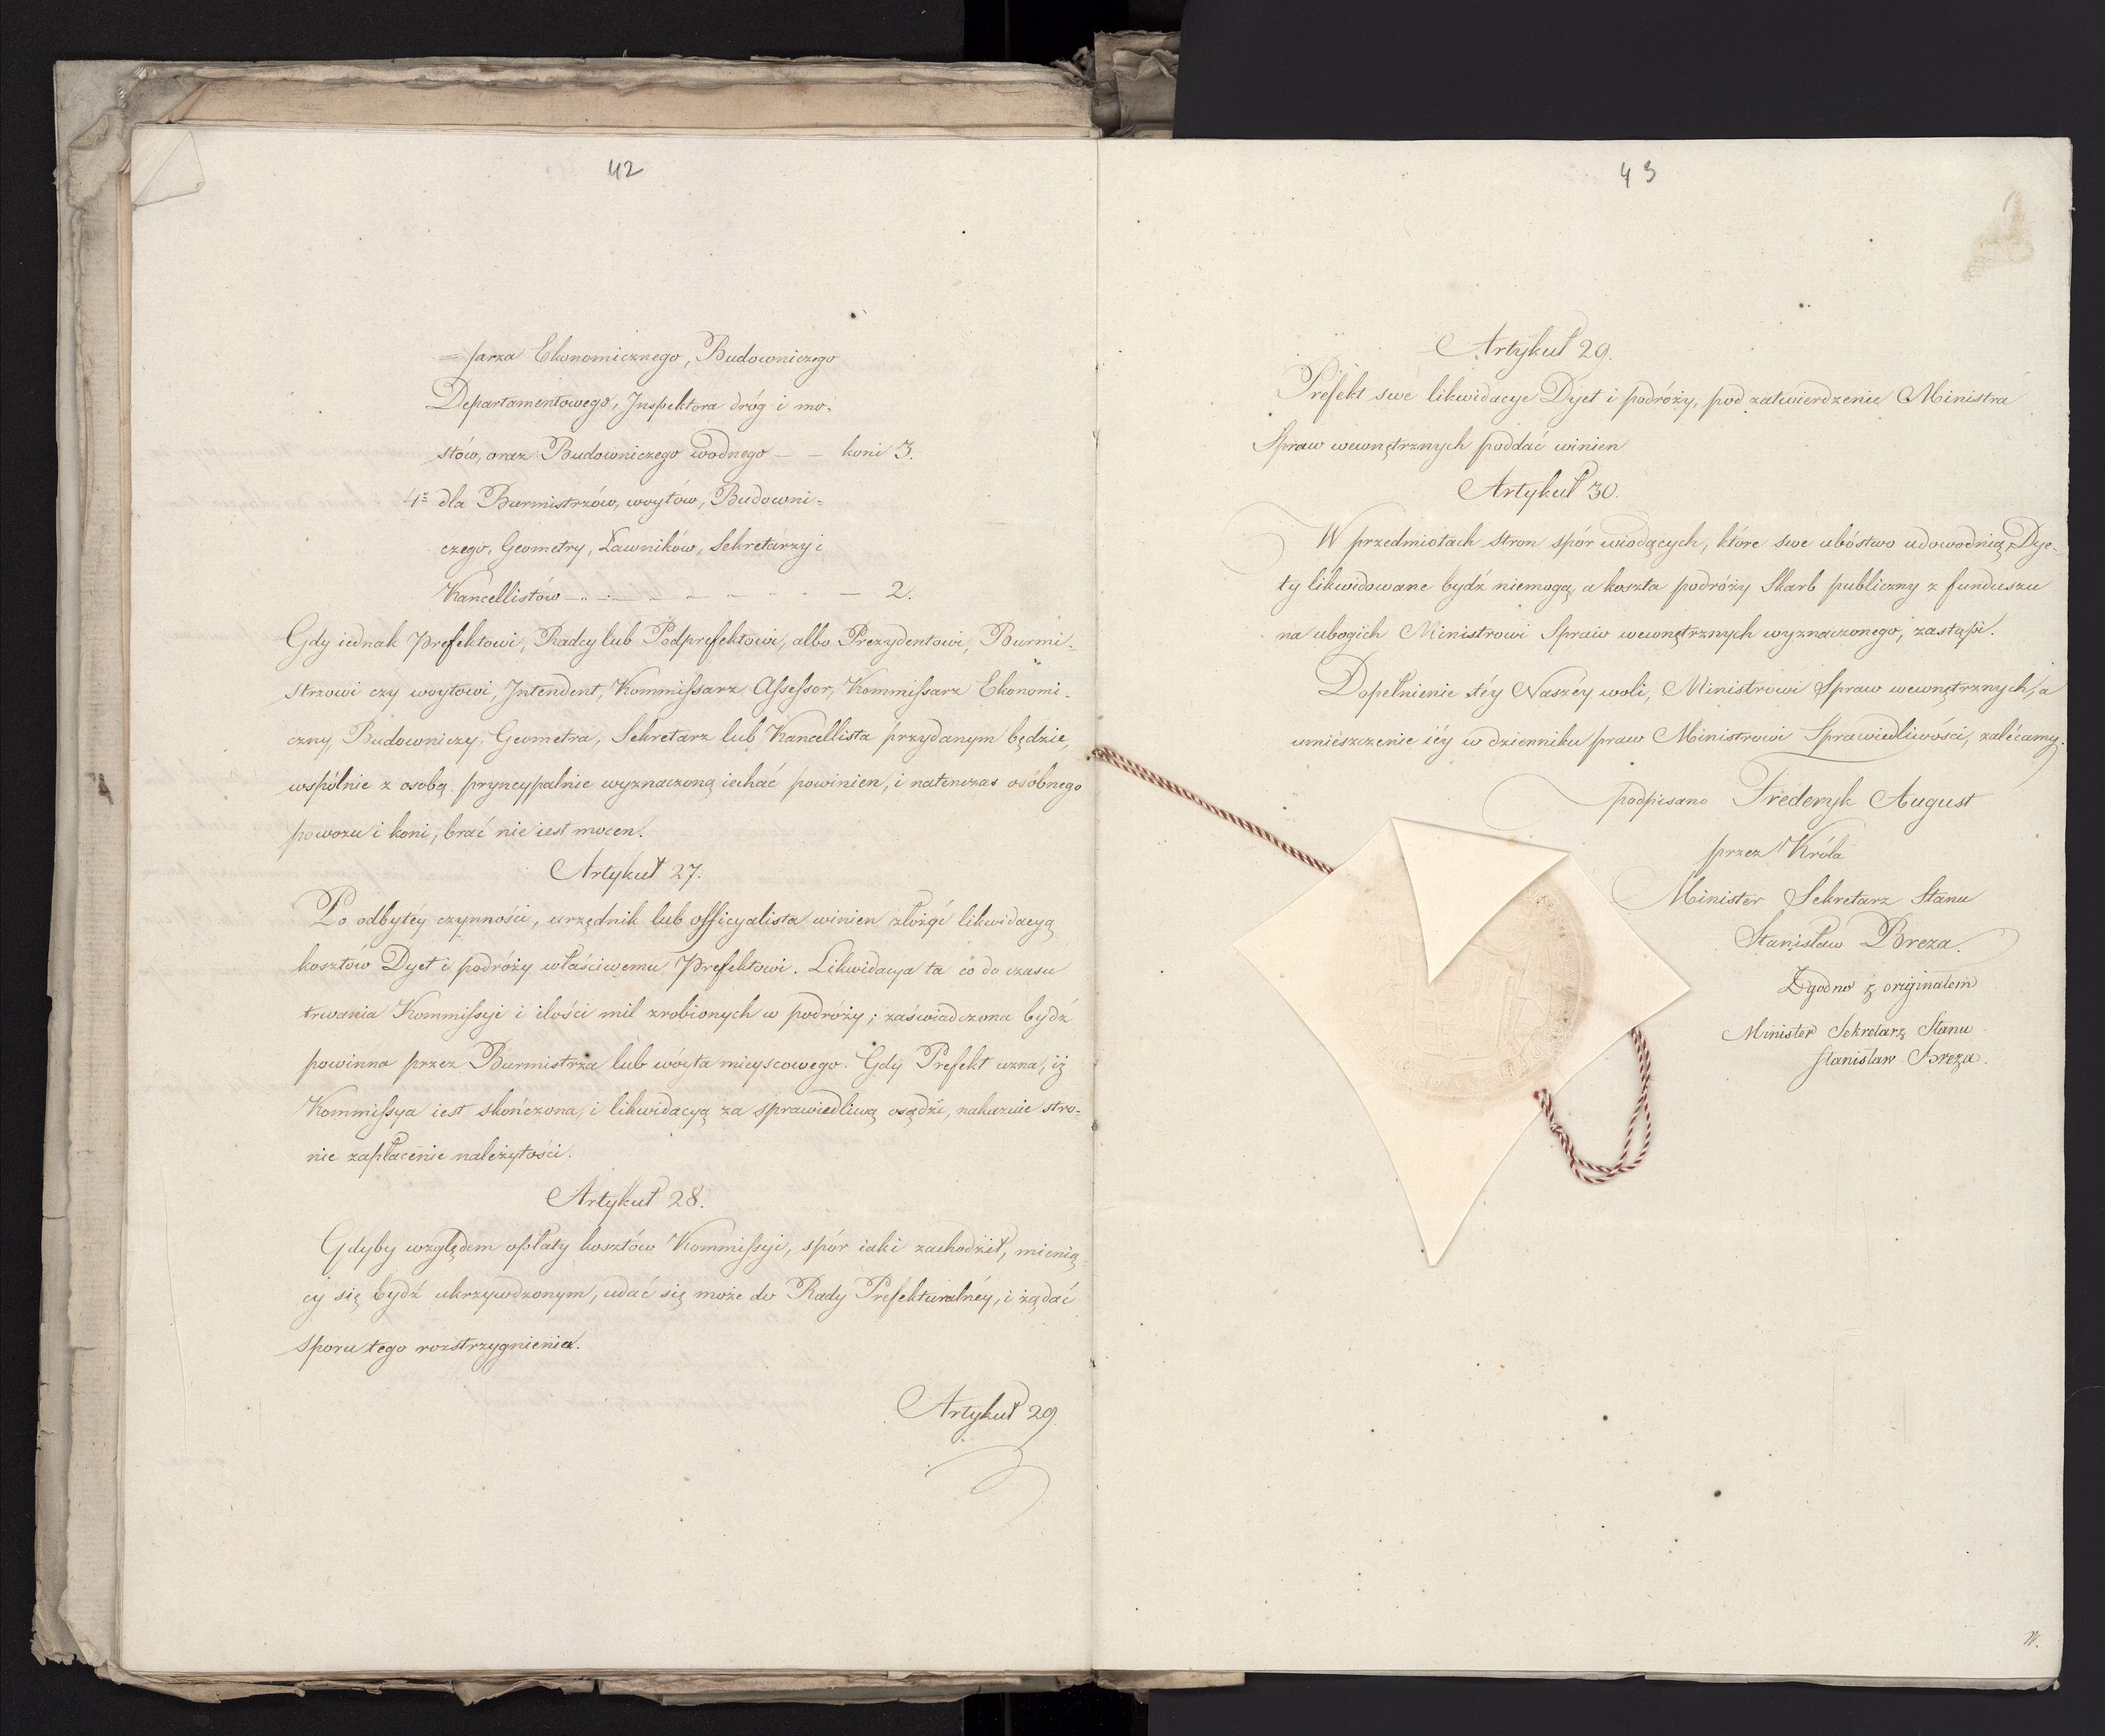 42
= ſarza Ekonomicznego, Budowniczego
Departamentowego, Inspektora dróg i mo-
stów, oraz Budowniczego wodnego — — koni 3.
4º dla Burmistrzów, woytów, Budowni-
czego, Geometry, Ławników, Sekretarzy i
Kancellistów — — 2.
Gdy iednak Prefektowi, Radcy lub Podprefektowi, albo Prezydentowi, Burmi-
strzowi czy woytowi, Intendent, Kommiſsarz Aſseſsor, Kommiſsarz Ekonomi-
czny, Budowniczy, Geometra, Sekretarz lub Kancellista przydanym będzie,
wspólnie z osobą pryncypalnie wyznaczoną iechać powinien, i natenczas osóbnego
powozu i koni, brać nie iest mocen.
Artykuł 27.
Po odbytéy czynności, urzędnik lub officyalista winien złożyć likwidacyą
kosztów Dyet i podróży właściwemu Prefektowi. Likwidacya ta co do czasu
trwania Kommiſsyi i ilości mil zrobionych w podróży; zaświadczona bydź
powinna przez Burmistrza lub wóyta mieyscowego. Gdy Prefekt uzna, iż
Kommiſsya iest skończona, i likwidacyą za sprawiedliwą osądzi, nakazuie stro-
nie zapłacenie należytości.
Artykuł 28.
Gdyby względem opłaty kosztów Kommiſsyi, spór iaki zachodził, mienią-
cy się bydź ukrzywdzonym, udać się może do Rady Prefekturalnéy, i żądać
sporu tego rozstrzygnienia.
Artykuł 29.
43
Artykuł 29.
Prefekt swe likwidacye Dyet i podróży, pod zatwierdzenie Ministra
Spraw wewnętrznych poddać winien
Artykuł 30.
W przedmiotach stron spór wiodących, które swe ubóstwo udowodnią, Dye-
ty likwidowane bydź niemogą, a koszta podróży Skarb publiczny z funduszu
na ubogich Ministrowi Spraw wewnętrznych wyznaczonego, zastąpi.
Dopełnienie téy Naszéy woli, Ministrowi Spraw wewnętrznych, a
umieszczenie iéy w dzienniku praw Ministrowi Sprawiedliwości, zalécamy.
podpisano Frederyk August
przez Króla
Minister Sekretarz Stanu
Stanisław Breza.
Zgodno z originałem
Minister Sekretarz Stanu
Stanisław Breza.